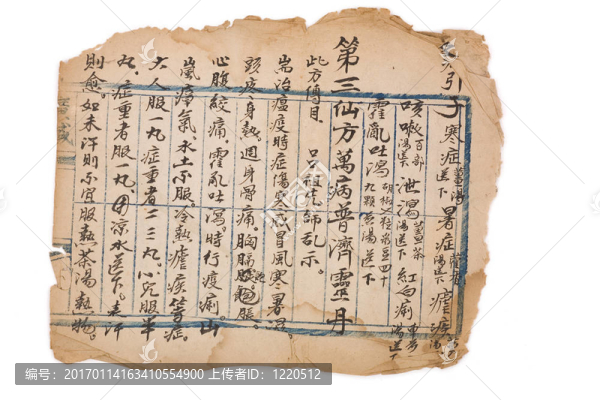 引子 寒症薑湯送下 暑症
咳嗽百部湯送下 泄瀉薑茶湯送下 紅白痢
霍亂吐瀉 湯送下
第三仙方萬病普濟靈丹
此方傳自 呂祖先師乩示
耑治瘟疫時症傷 感冒風寒暑濕
頭疼身熱週身骨痛。胸膈脹。
心腹絞痛。霍亂吐瀉。時行疫痢。山
嵐瘴氣。水土不服。冷熱瘧疾等症。
大人服一丸症重者二三丸。小兒服半
丸。症重者服一丸。用凉水送下。表汗
則愈。如未汗則不宜服熱茶湯熱物。
编号：20170114163410554900 上传者ID：1220512